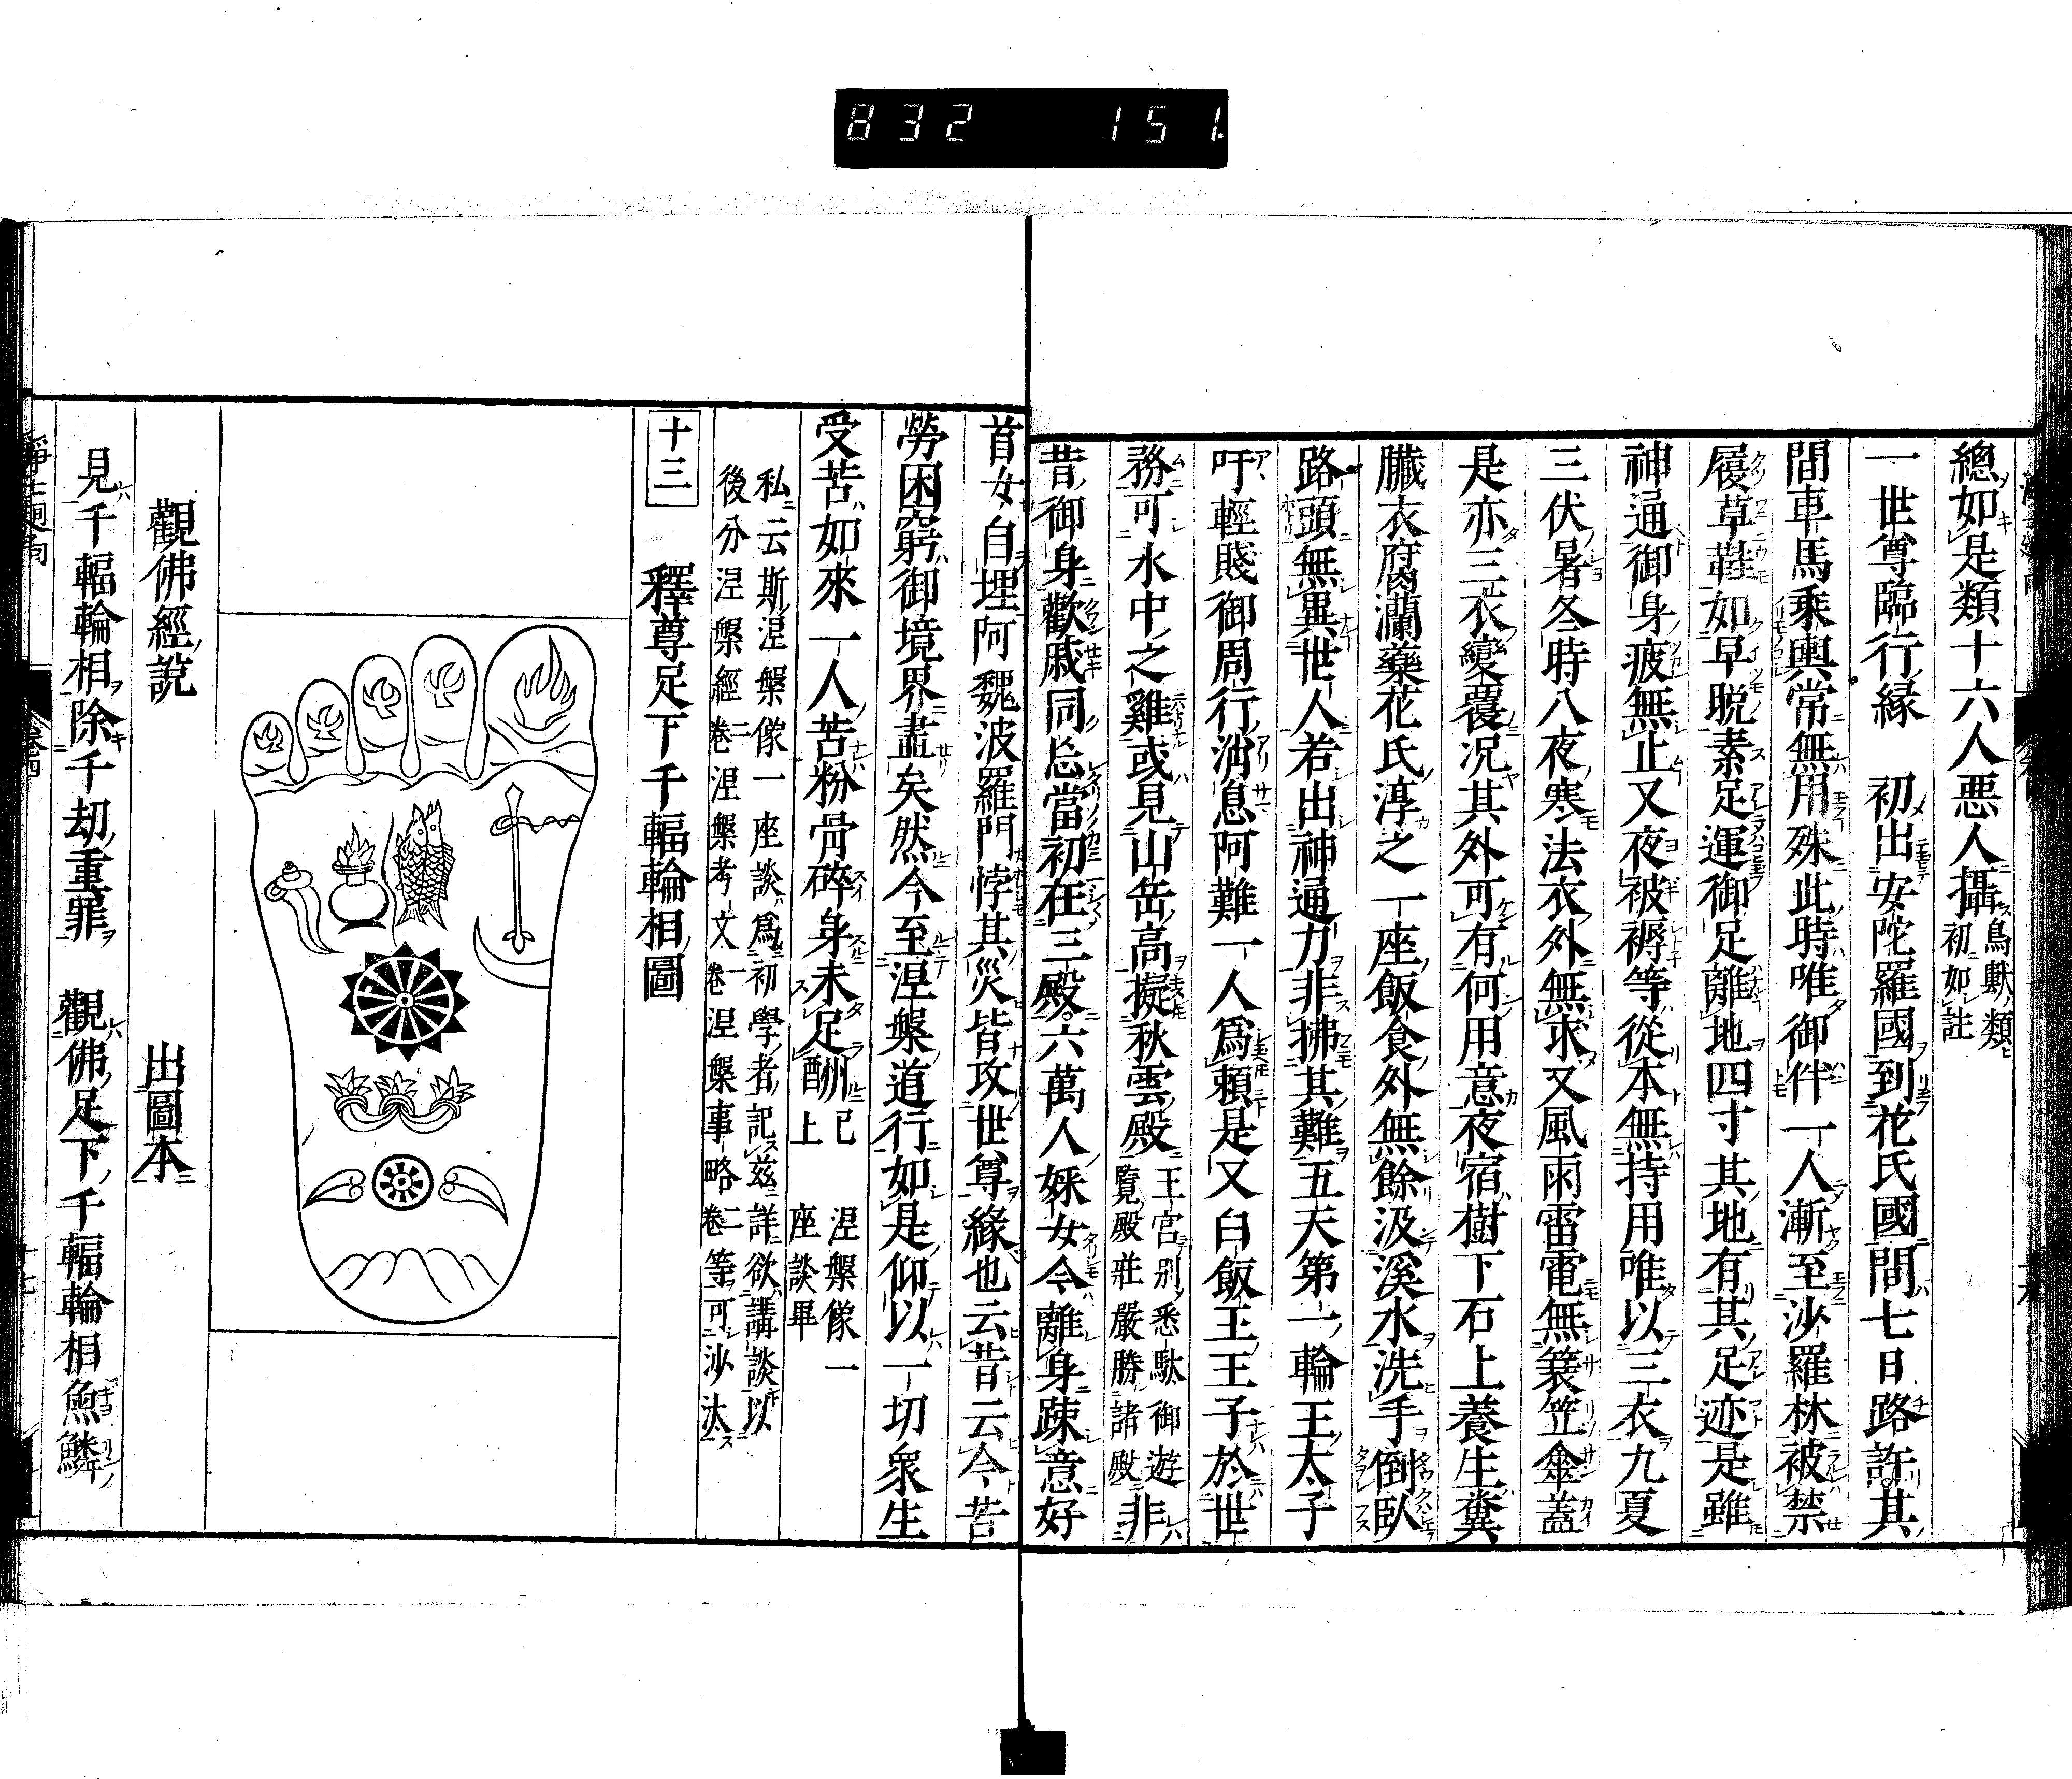 832 151.
總如是類十六人悪人攝鳥獸類初如註
一世尊臨行縁 初出安陀羅國到花氏國間七日路許其
間車馬乘輿常無用殊此時唯御伴一人漸至沙羅林被禁
履草鞋如早脱素足運御足離地四寸其地有其足迹是雖
神通御身疲無止又夜被褥等從本無持用唯以三衣九夏
三伏暑冬時八夜寒法衣外無求又風雨雷電無簑笠傘蓋
是亦三衣纔覆況其外可有何用意夜宿樹下石上養生糞
臓衣腐爛藥花氏淳之一座飯食外無餘汲溪水洗手倒臥
路頭無異世人若出神通力非拂其難五天第一輪王太子
吁輕賤御周行消息阿難一人爲頼是又白飯王王子於世
務可水中之雞或見山岳高擬秋雲殿王宮別悉駄御遊覽殿莊嚴勝諸殿非
昔御身歡戚同忩當初在三殿六萬人婇女今離身踈意好
首女自埋阿魏波羅門悖其災皆攻世尊緣也云昔云今苦
勞困窮御境界盡矣然今至涅槃道行如是仰以一切衆生
受苦如來一人苦粉骨碎身未足酬已上 涅槃像一座談畢
私云斯涅槃像一座談爲初學者記茲詳欲講談以
後分涅槃經二卷涅槃考文一卷涅槃事略二卷等可沙汰
十三 釋尊足下千輻輪相圖
觀佛經説 出圖本
見千輻輪相除千劫重罪 觀佛足下千輻輪相魚鱗